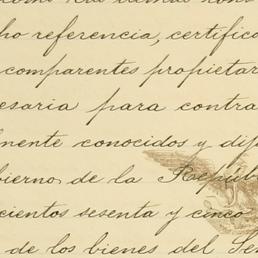 ho referencia, certifica
comparentes propietar
esaria para contra
mente conocidos y dip
bierno de la Repúb
cientos sesenta y cinco
de los bienes del Se